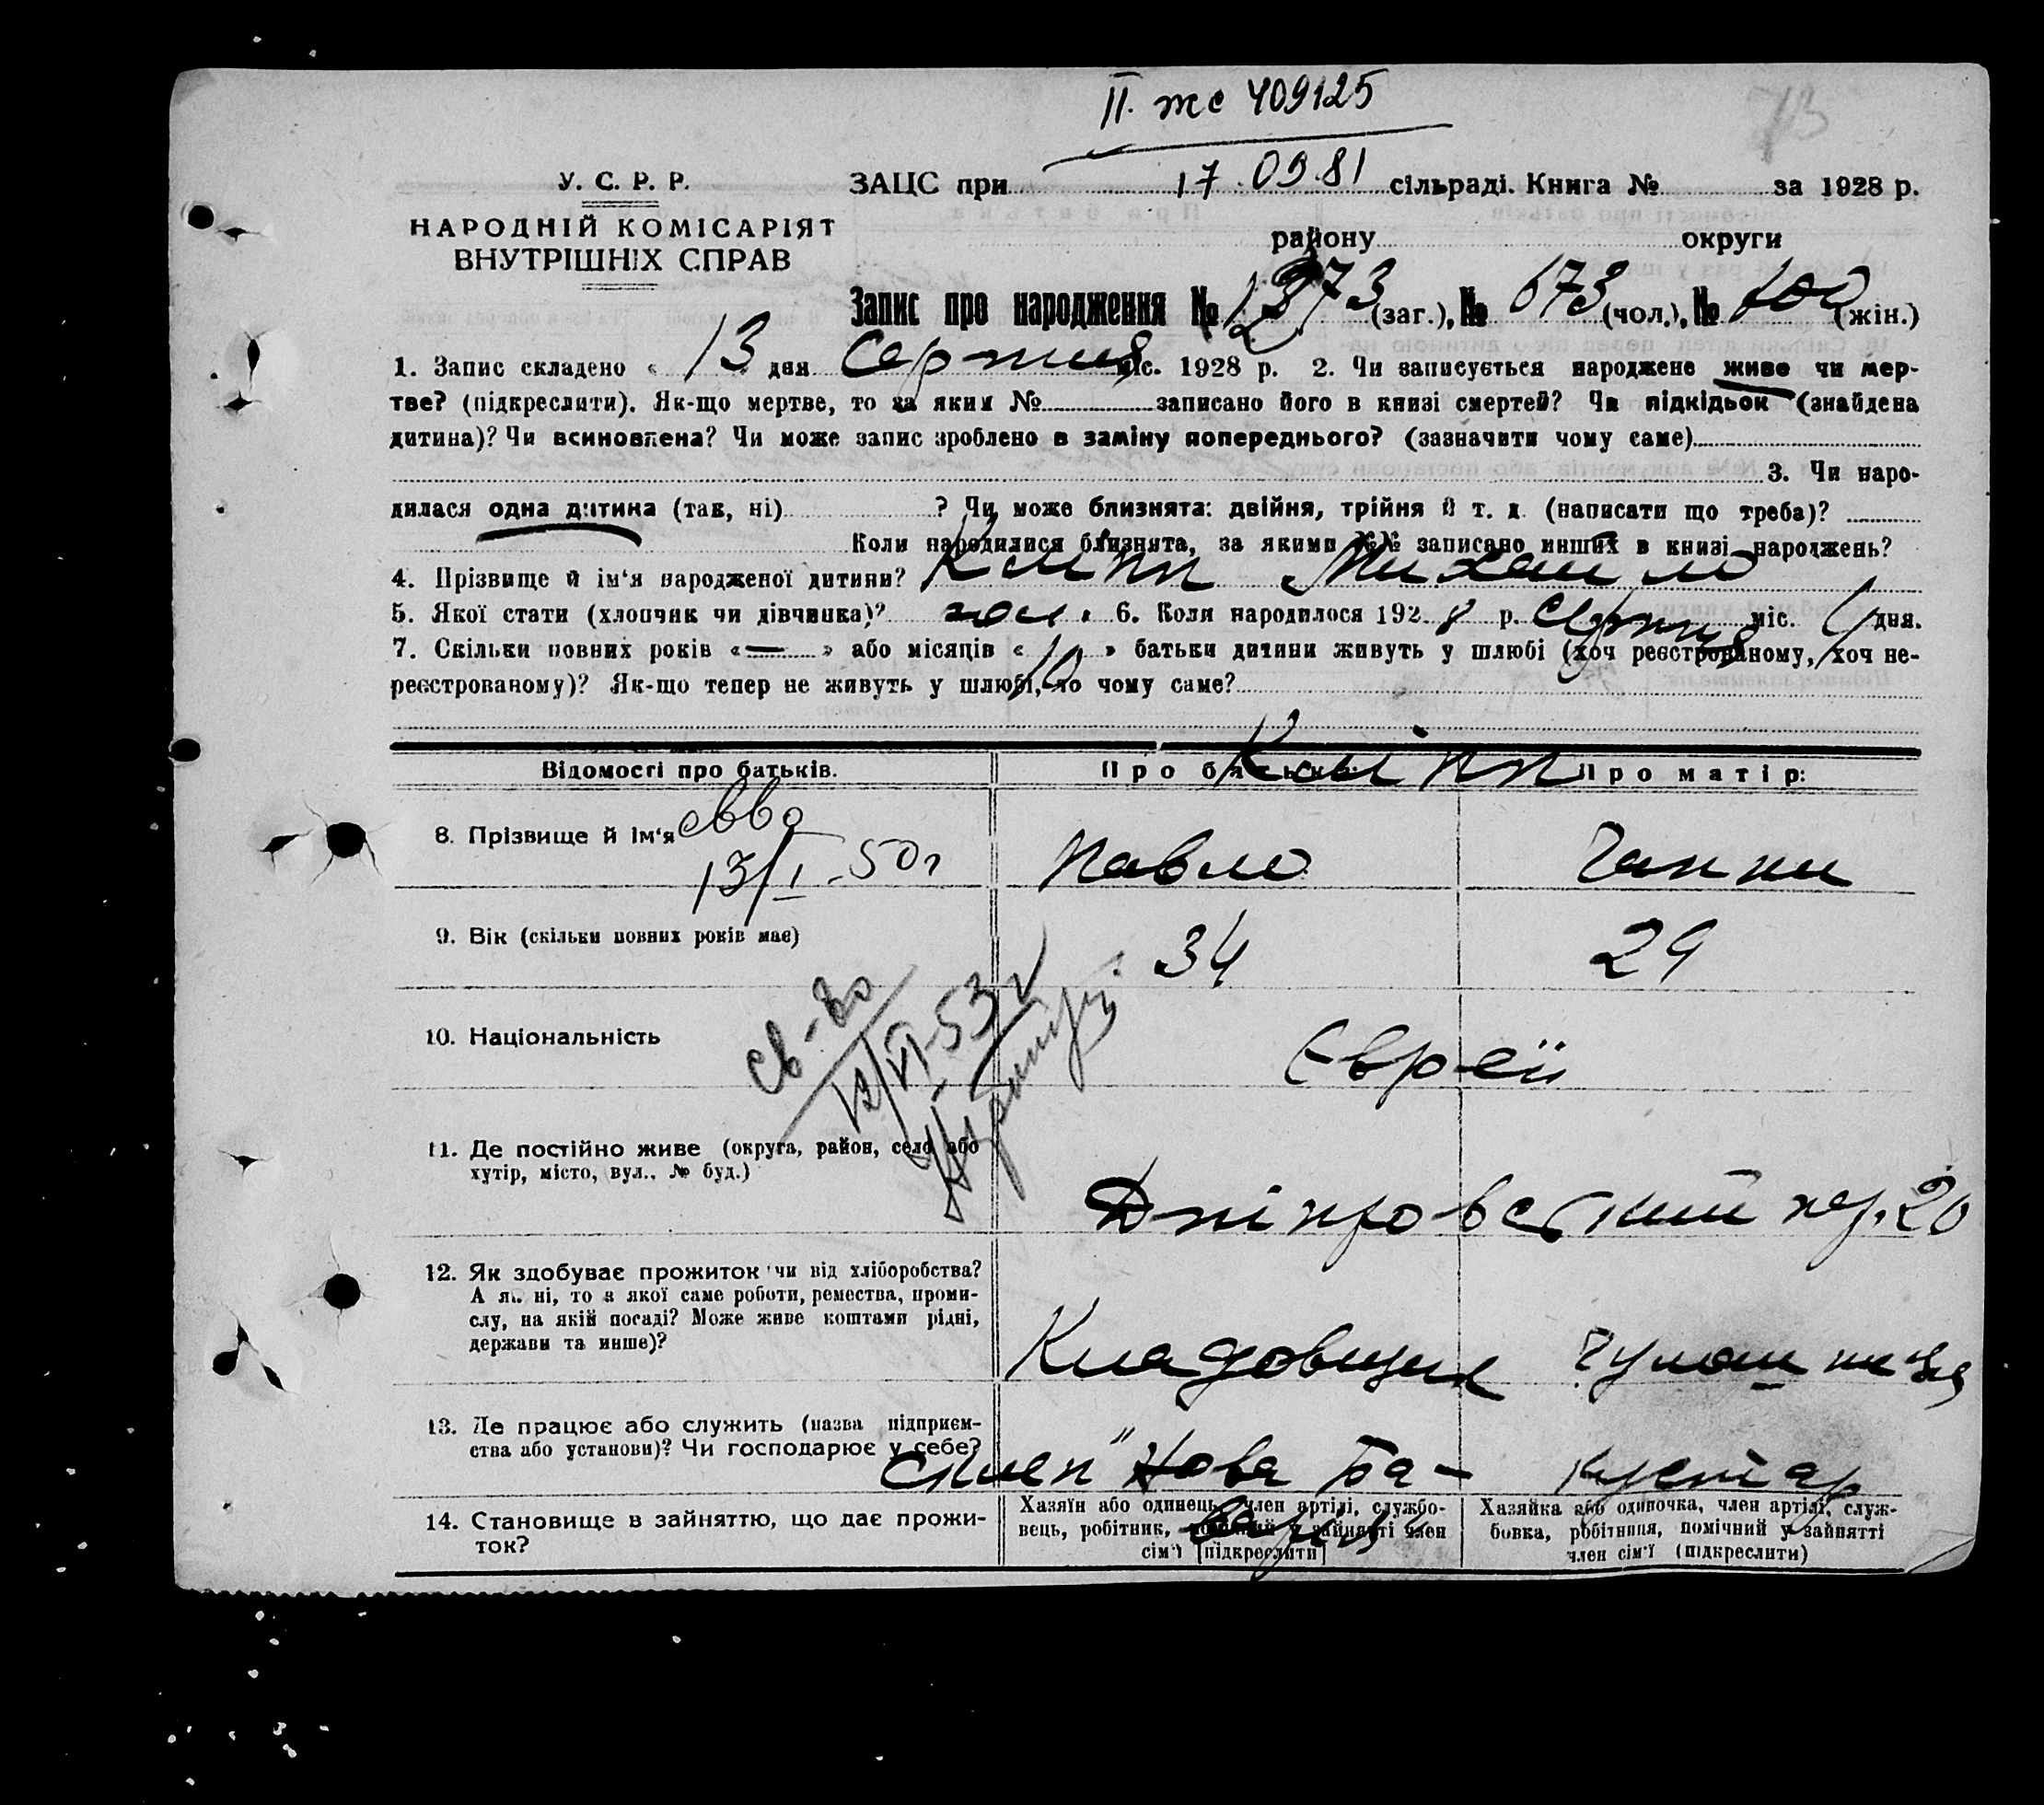 II. же 409125
73
У. С. Р. Р.
НАРОДНІЙ КОМІСАРІЯТ
ВНУТРІШНІХ СПРАВ
ЗАЦС при 17.09.81 сільраді. Книга № за 1928 р.
району округи
Запис про народження № 1273 (заг.), № 673 (чол.), № 600 (жін.)
1. Запис складено « 13 » дня Серпня міс. 1928 р. 2. Чи записується народжене живе чи мер-
тве? (підкреслити). Як-що мертве, то за яким № записано його в книзі смертей? Чи підкідьок (знайдена
дитина)? Чи всиновлена? Чи може запис зроблено в заміну попереднього? (зазначити чому саме)
3. Чи наро-
дилася одна дитина (так, ні) ? Чи може близнята: двійня, трійня й т. д. (написати що треба)?
Коли народилися близнята, за якими №№ записано инших в книзі народжень?
4. Прізвище й ім'я народженої дитини? Михайло
5. Якої стати (хлопчик чи дівчинка)? чол. 6. Коли народилося 192 8 р. Серпня міс. дня.
7. Скільки повних років « — » або місяців « 10 » батьки дитини живуть у шлюбі (хоч реєстрованому, хоч не-
реєстрованому)? Як-що тепер не живуть у шлюбі, то чому саме?
Відомості про батьків.
Про батька:
Про матір:
8. Прізвище й ім'я
Павло
Ганни
свво
13/I-50г
9. Вік (скільки повних років має)
34
29
10. Національність
Євреї
св-во
12/VI-53г
11. Де постійно живе (округа, район, село або
хутір, місто, вул., № буд.)
Дніпровський пер. 20
12. Як здобуває прожиток чи від хліборобства?
А як ні, то з якої саме роботи, ремества, проми-
слу, на якій посаді? Може живе коштами рідні,
держави та инше)?
Кладовщик
13. Де працює або служить (назва підприєм-
ства або установи)? Чи господарює у себе?
"Нова Ба-
варія
кустар
14. Становище в зайняттю, що дає прожи-
ток?
Хазяїн або одинець, член артілі, службо-
вець, робітник, помічний у зайнятті член
сім'ї [підкреслити]
Хазяйка або одиночка, член артілі, служ-
бовка, робітниця, помічний у зайнятті
член сім'ї (підкреслити)